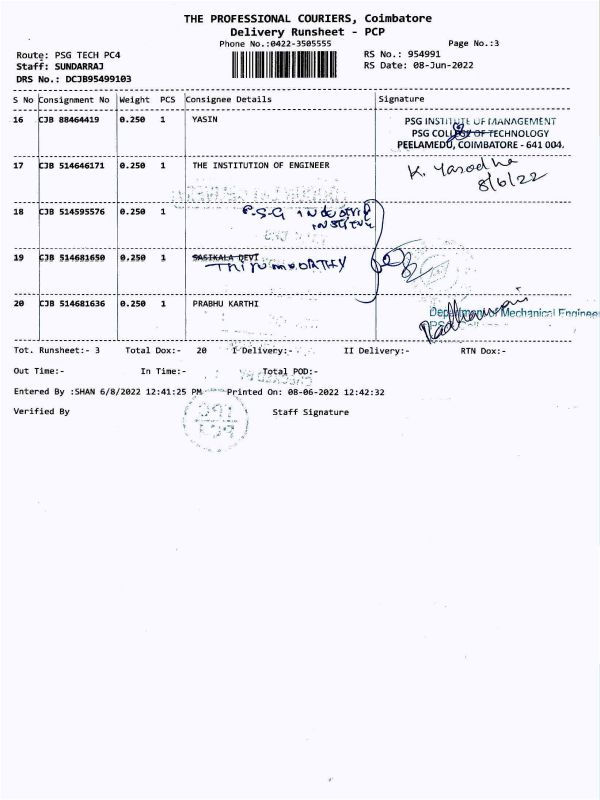 THE PROFESSIONAL COURIERS, Coimbatore
Delivery Runsheet - PCP
Phone No.:0422-3505555
Page No.:3
Route: PSG TECH PC4
RS No.: 954991
Staff: SUNDARRAJ
RS Date: 08-Jun-2022
DRS No.: DCJB95499103
S No Consignment No Weight PCS Consignee Details Signature
16 CJB 88464419 0.250 1 YASIN
PSG INSTITUTE OF MANAGEMENT
PSG COLLEGE OF TECHNOLOGY
PEELAMEDU, COIMBATORE - 641 004.
17 CJB 514646171 0.250 1 THE INSTITUTION OF ENGINEER
K. Yasodha
8/6/22
18 CJB 514595576 0.250 1 P.S.G
19 CJB 514681650 0.250 1 SASIKALA DEVI
20 CJB 514681636 0.250 1 PRABHU KARTHI
Department of Mechanical Enginee
Tot. Runsheet:- 3 Total Dox:- 20 I Delivery:- II Delivery:- RTN Dox:-
Out Time:- In Time:- Total POD:-
Entered By :SHAN 6/8/2022 12:41:25 PM Printed On: 08-06-2022 12:42:32
Verified By Staff Signature